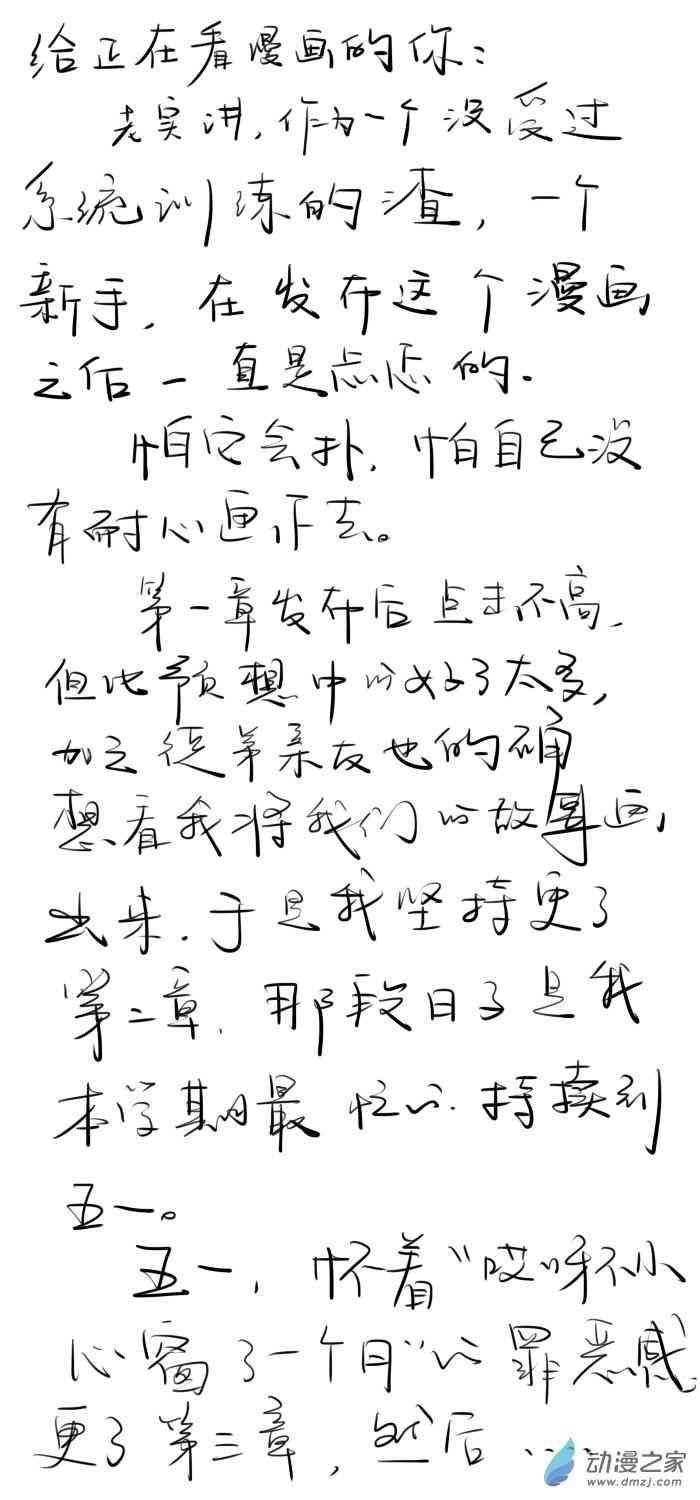 给正在看漫画的你:
老实讲,作为一个没受过
系统训练的渣,一个
新手,在发布这个漫画
之后一直是忐忑的.
怕它会扑,怕自己没
有耐心画下去。
第一章发布后点击不高,
但比预想中的好了太多,
加之徒弟亲友也的确
想看我将我们的故事画
出来.于是我坚持更了
第二章.那段日子是我
本学期最忙的.持续到
五一。
五一,怀着“哎呀不小
心窗了一个月”的罪恶感
更了第三章,然后……
动漫之家
www.dmzj.com